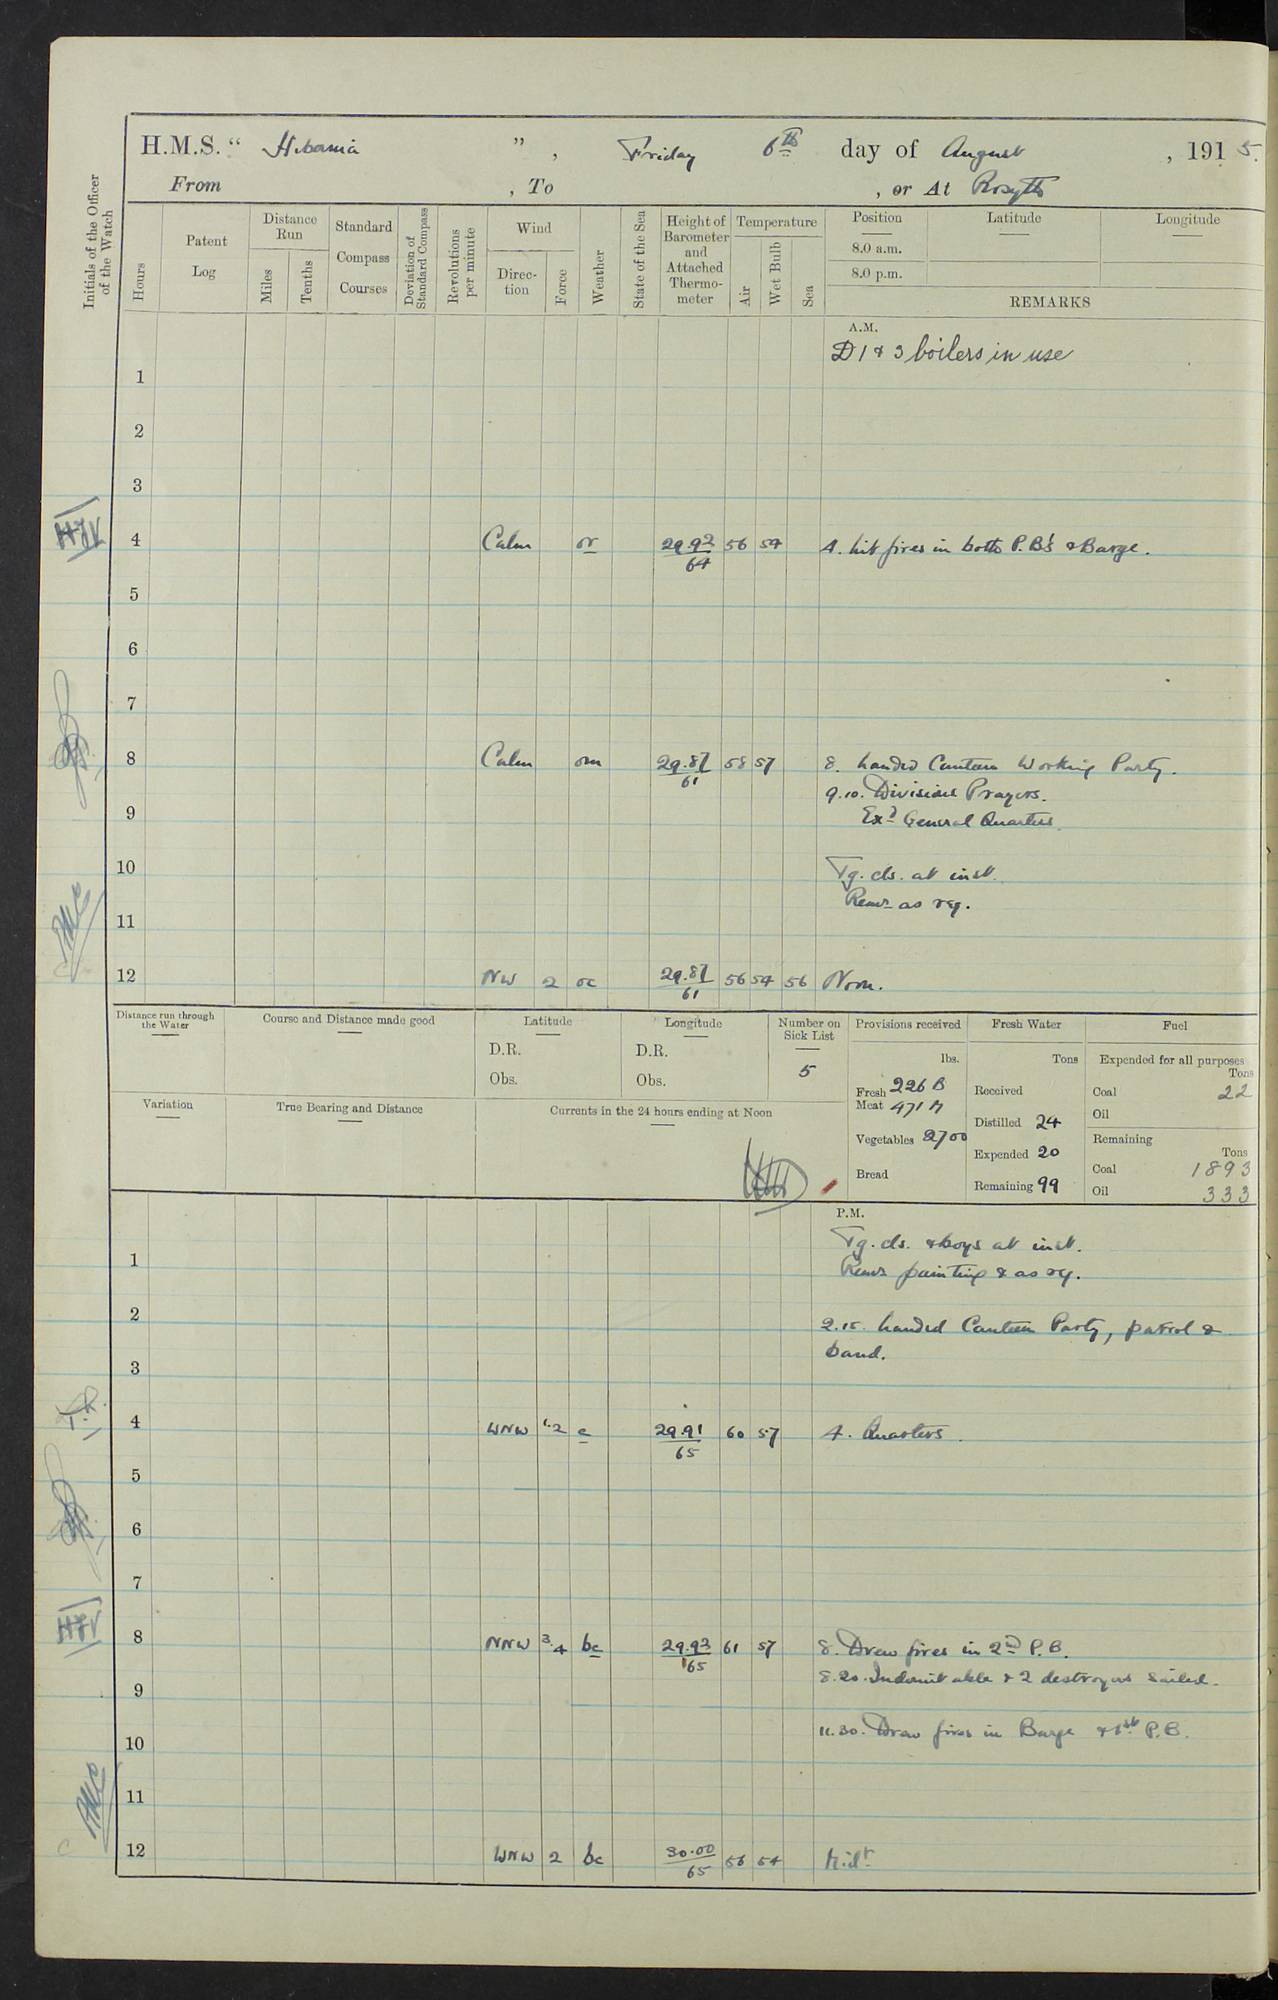 H.M.S. “ Hibernia ” , Friday 6th day of August , 1915.
From , To , or At Rosyth
Initials of the Officer of the Watch
Hours
Patent Log
Distance Run
Miles
Tenths
Standard Compass Courses
Deviation of Standard Compass
Revolutions per minute
Wind
Direc-tion
Force
Weather
State of the Sea
Height of Barometer and Attached Thermo-meter
Temperature
Air
Wet Bulb
Sea
Position Latitude Longitude
8.0 a.m.
8.0 p.m.
REMARKS
A.M.
D 1 & 3 boilers in use
1
2
3
4 Calm or 29.92/64 56 54 4. Lit fires in both P.B's & Barge.
5
6
7
8 Calm om 29.87/61 58 57 8. Landed Canteen Working Party.
9.10. Divisions Prayers.
9 Exd General Quarters.
10 Tg. cls. at inst.
Remr as req.
11
12 NW 2 oc 29.87/61 56 54 56 Noon.
Distance run through the Water
Course and Distance made good
Latitude
D.R.
Obs.
Longitude
D.R.
Obs.
Number on Sick List
5
Provisions received
lbs.
Fresh Meat 226 B
471 M
Vegetables 2700
Bread
Fresh Water
Tons
Received
Distilled 24
Expended 20
Remaining 99
Fuel
Expended for all purposes
Tons
Coal 22
Oil
Remaining
Tons
Coal 1893
Oil 333
Variation
True Bearing and Distance
Currents in the 24 hours ending at Noon
P.M.
Tg. cls. & boys at inst.
1 Remr painting & as req.
2 2.15. Landed Canteen Party, patrol &
band.
3
4 WNW 1.2 c 29.91/65 60 57 4. Quarters.
5
6
7
8 NNW 3.4 bc 29.93/65 61 57 8. Drew fires in 2nd P.B.
8.20. Indomitable & 2 destroyers sailed.
9
11.30. Drew fires in Barge & 1st P.B.
10
11
12 WNW 2 bc 30.00/65 56 54 Midt